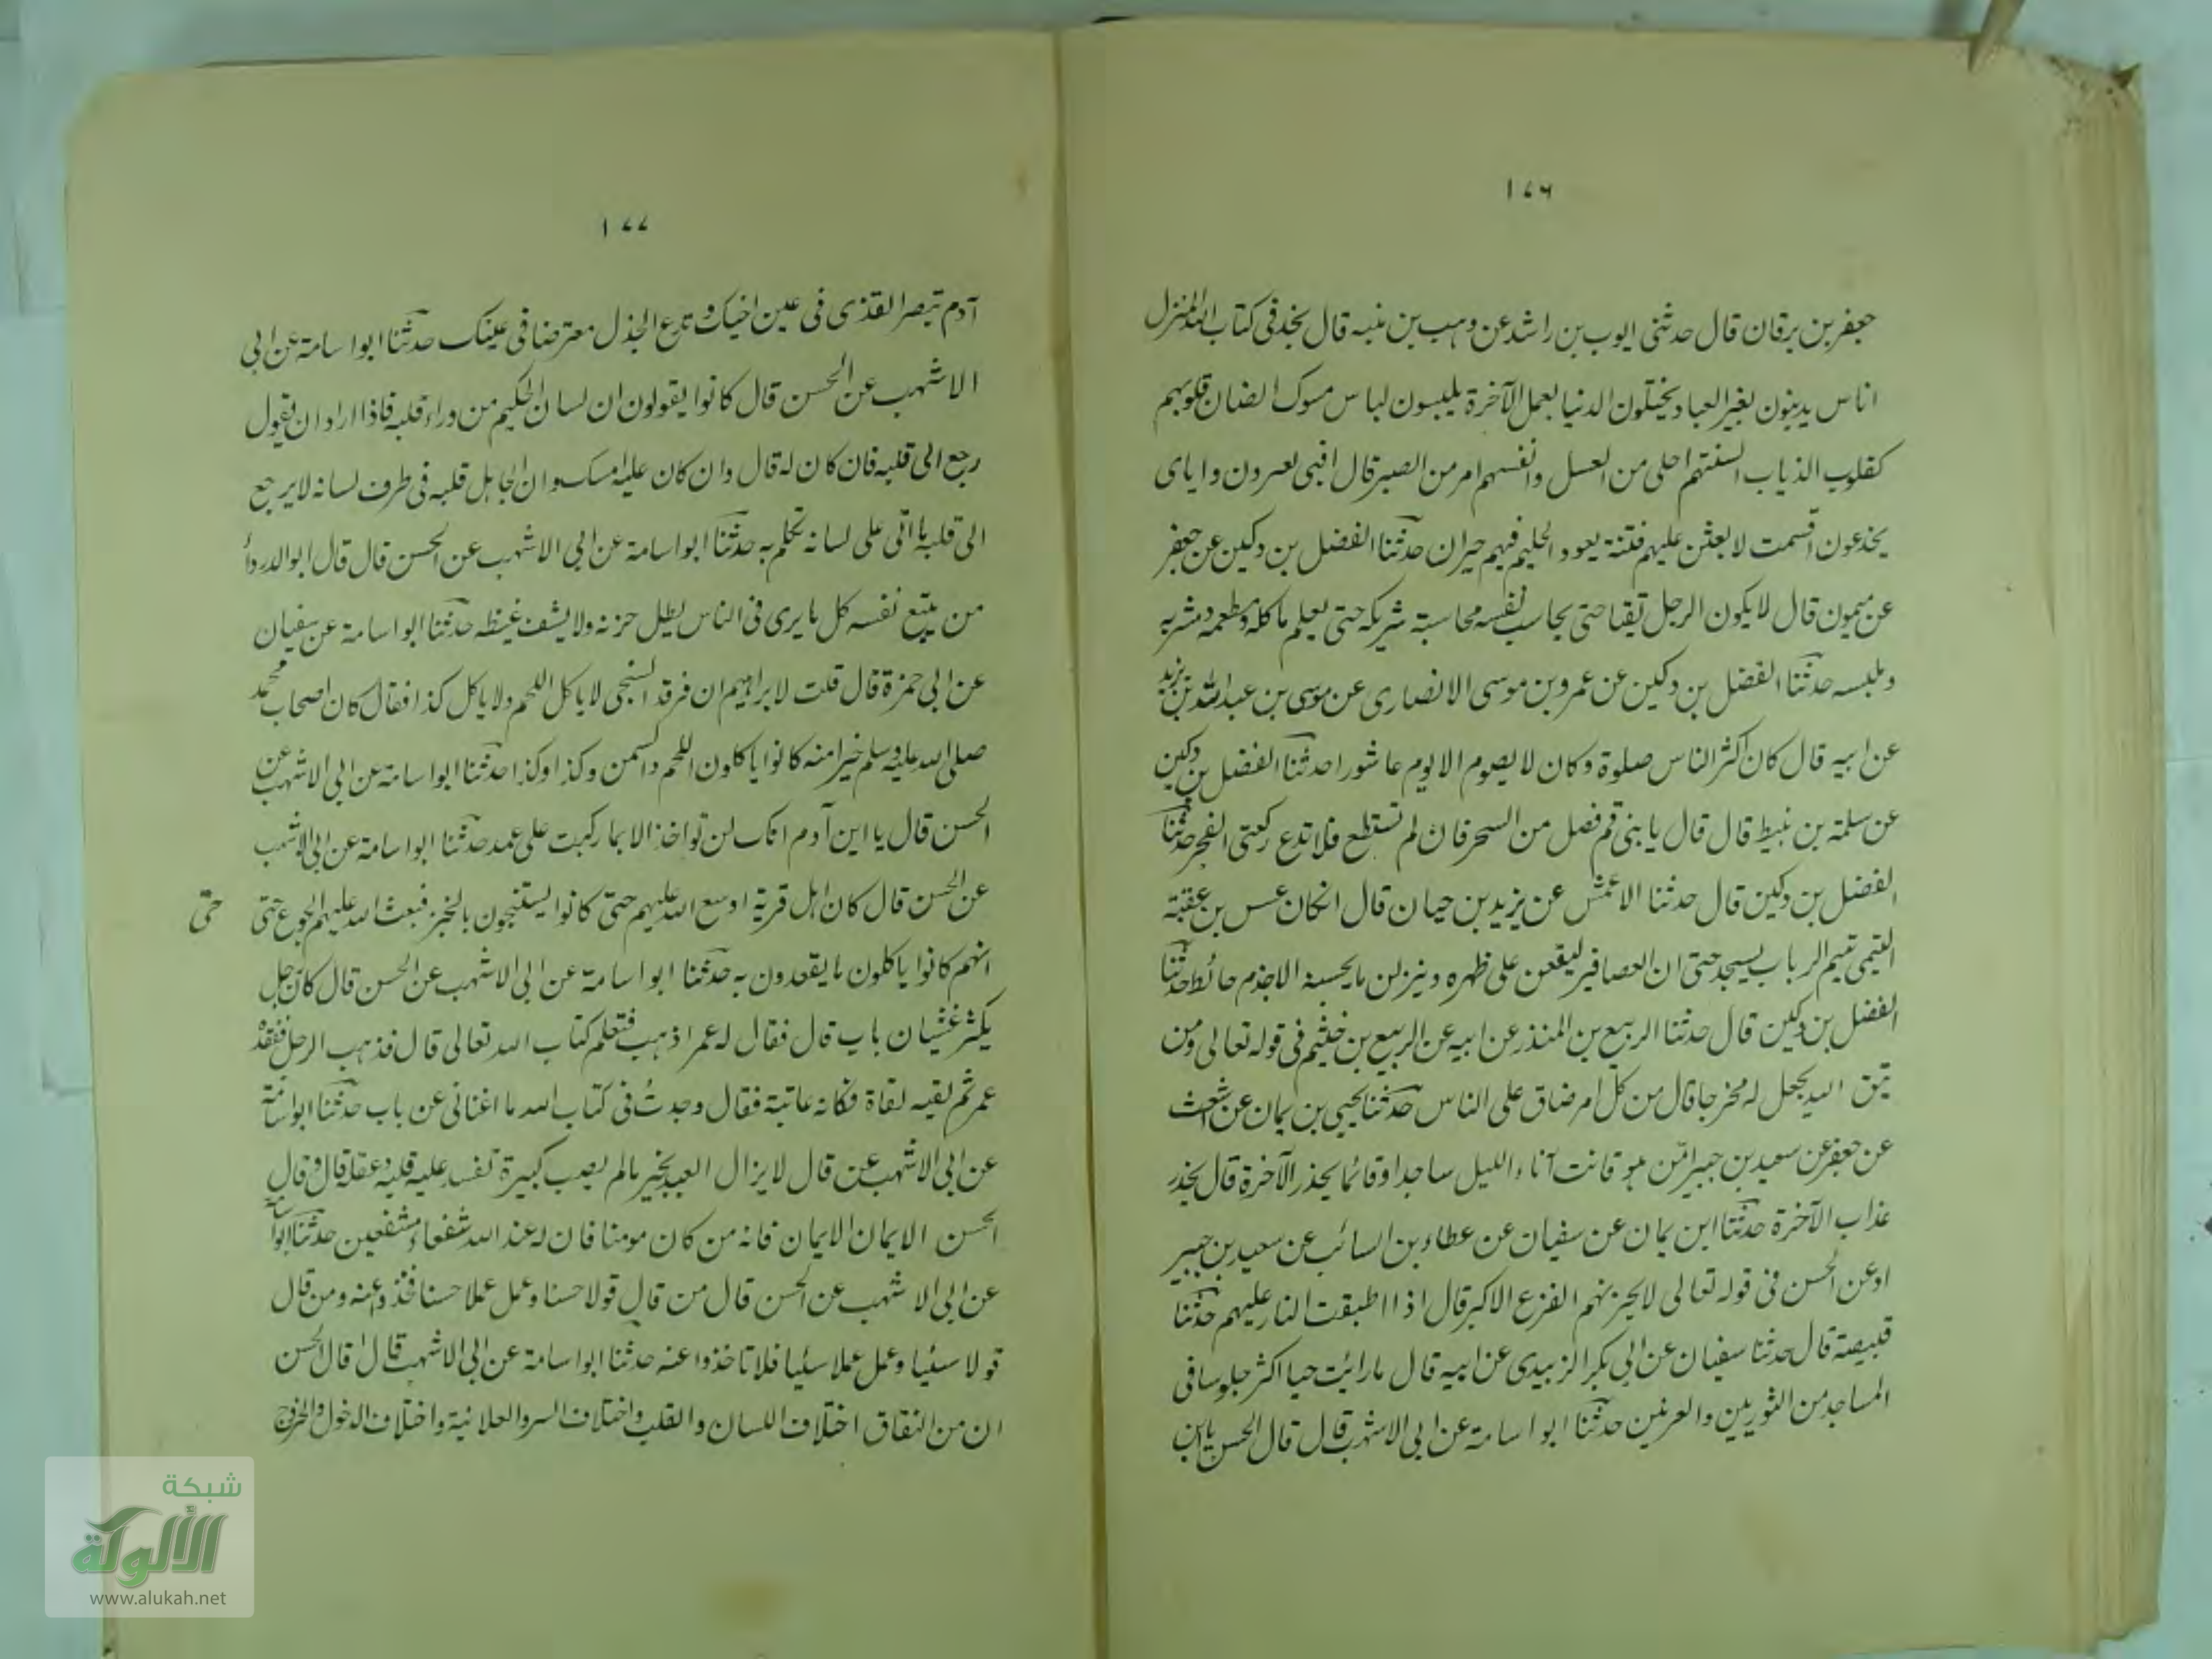 ١٧٦
جعفر بن برقان قال حدثنی ایوب بن راشد عن وہب بن منبہ قال یخد فی کتاب اللہ المنزل
اناس یدینون بغیر العباد یختلون الدنیا بعمل الآخرة یلبسون لباس مسوک الضان قلوبہم
کقلوب الذیاب السنتہم احلی من العسل وانفسہم امر من الصبر قال افبی لعرون وایای
یخدعون اقسمت لابعثن علیہم فتنة یعود الحلیم فیہم حیران حدثنا الفضل بن دکین عن جعفر
عن میمون قال لا یکون الرجل تقیا حتی یحاسب نفسہ محاسبة شریکہ حتی یعلم ما کلہ ومطعمہ ومشربہ
وملبسہ حدثنا الفضل بن دکین عن عمرو بن موسی الانصاری عن موسی بن عبد اللہ بن یزید
عن ابیہ قال کان اکثر الناس صلوة وکان لا یصوم الا یوم عاشورا حدثنا الفضل بن دکین
عن سلمة بن نبیط قال قال یا بنی قم فصل من السحر فان لم تستطع فلا تدع رکعتی الفجر حدثنا
الفضل بن دکین قال حدثنا الاعمش عن یزید بن حیان قال انکان عبس بن عقبة
التیمی تیم الرباب لیسجد حتی ان العصافیر لیقعن علی ظہرہ وینزلن ما یحسبنہ الا جذم حائط حدثنا
الفضل بن دکین قال حدثنا الربیع بن المنذر عن ابیہ عن الربیع بن خثیم فی قولہ تعالی ومن
یتق اللہ یجعل لہ مخرجا قال من کل امر ضاق علی الناس حدثنا یحیی بن یمان عن اشعث
عن جعفر عن سعید بن جبیر امّن ہو قانت آناء اللیل ساجدا وقائما یحذر الآخرة قال یحذر
عذاب الآخرة حدثنا ابن یمان عن سفیان عن عطاء بن السائب عن سعید بن جبیر
او عن الحسن فی قولہ تعالی لا یحزنہم الفزع الاکبر قال اذا اطبقت النار علیہم حدثنا
قبیصة قال حدثنا سفیان عن ابی بکر الزبیدی عن ابیہ قال ما رایت حیا اکثر جلوسا فی
المساجد من الثوریین والعرنیین حدثنا ابو اسامة عن ابی الاشہب قال قال الحسن یا ابن
١٧٧
آدم تبصر القذی فی عین اخیک وتدع الجذل معترضا فی عینک حدثنا ابو اسامة عن ابی
الاشہب عن الحسن قال کانوا یقولون ان لسان الحکیم من وراء قلبہ فاذا اراد ان یقول
رجع الی قلبہ فان کان لہ قال وان کان علیہ امسک وان الجاہل قلبہ فی طرف لسانہ لا یرجع
الی قلبہ ما اتی علی لسانہ تکلم بہ حدثنا ابو اسامة عن ابی الاشہب عن الحسن قال قال ابو الدرداء
من یتبع نفسہ کل ما یری فی الناس یطل حزنہ ولا یشف غیظہ حدثنا ابو اسامة عن سفیان
عن ابی حمزة قال قلت لابراہیم ان فرقد السنجی لا یاکل اللحم ولا یاکل کذا فقال کان اصحاب محمد
صلی اللہ علیہ وسلم خیرا منہ کانوا یاکلون اللحم والسمن وکذا وکذا حدثنا ابو اسامة عن ابی الاشہب عن
الحسن قال یا ابن آدم انک لن تواخذ الا بما رکبت علی عمد حدثنا ابو اسامة عن ابی الاشہب
عن الحسن قال کان اہل قریة اوسع اللہ علیہم حتی کانوا یستنجون بالخبز فبعث اللہ علیہم الجوع حتی حتّی
انہم کانوا یاکلون ما یقعدون بہ حدثنا ابو اسامة عن ابی الاشہب عن الحسن قال کان رجل
یکثر غشیان باب قال فقال لہ عمر اذہب فتعلم کتاب اللہ تعالی قال فذہب الرجل ففقدہ
عمر ثم لقیہ لقاة فکانہ عاتبة فقال وجدتُ فی کتاب اللہ ما اغنانی عن باب حدثنا ابو اسامة
عن ابی الاشہب عن قال لا یزال العبد بخیر ما لم یصب کبیرة تفسد علیہ قلبہ وعقلہ قال وقال
الحسن الایمان الایمان فانہ من کان مومنا فان لہ عند اللہ شفعاء مشفعین حدثنا ابو اسامة
عن ابی الاشہب عن الحسن قال من قال قولا حسنا وعمل عملا حسنا فخذوا عنہ ومن قال
قولا سئیا وعمل عملا سئیا فلا تاخذوا عنہ حدثنا ابو اسامة عن ابی الاشہب قال قال الحسن
ان من النفاق اختلاف اللسان والقلب واختلاف السر والعلانیة واختلاف الدخول والخروج
شبكة
الألوكة
www.alukah.net